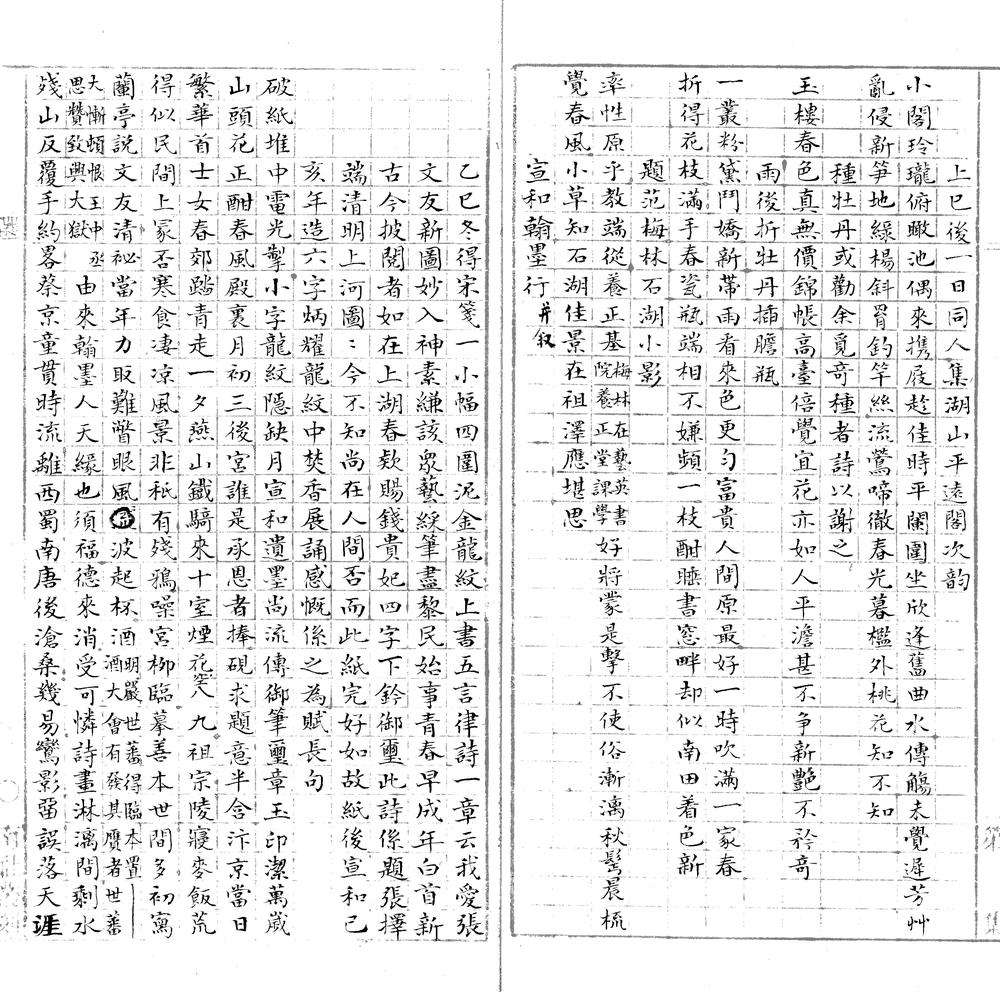 上巳後一日同人集湖山平遠閣次韵
小閣玲瓏俯瞰池偶來攜屐趁佳時平闌圍坐欣逢舊曲水傳觴未覺遲芳艸
亂侵新笋地緑楊斜罥釣竿絲流鶯啼徹春光暮檻外桃花知不知
種牡丹或勸余覓奇種者詩以謝之
玉樓春色真無價錦帳高臺倍覺宜花亦如人平澹甚不争新艷不矜奇
雨後折牡丹插膽瓶
一叢粉黛鬥嬌新帶雨看來色更勻富貴人間原最好一時吹滿一家春
折得花枝滿手春瓷瓶端相不嫌頻一枝酣睡書窓畔却似南田着色新
題范梅林石湖小影
率性原乎教端從養正基梅林在藝英書院養正堂課學好將蒙是擊不使俗漸漓秋髩晨梳
覺春風小草知石湖佳景在祖澤應堪思
宣和翰墨行并叙
乙巳冬得宋箋一小幅四圍泥金龍紋上書五言律詩一章云我愛張
文友新圖妙入神素縑該衆藝綵筆盡黎民始事青春早成年白首新
古今披閱者如在上湖春欵賜錢貴妃四字下鈐御璽此詩係題張擇
端清明上河圖：今不知尚在人間否而此紙完好如故紙後宣和己
亥年造六字炳耀龍紋中焚香展誦感慨係之為賦長句
破紙堆中電光掣小字龍紋隱缺月宣和遺墨尚流傳御筆璽章玉印潔萬歲
山頭花正酣春風殿裏月初三後宮誰是承恩者捧硯求題意半含汴京當日
繁華首士女春郊踏青走一夕燕山鐵騎來十室煙花空八九祖宗陵寢麥飯荒
得似民間上冢否寒食凄涼風景非秪有殘鴉噪宮柳臨摹善本世間多初寫
蘭亭説文友清祕當年力取難瞥眼風波起杯酒明嚴世蕃得臨本置酒大會有發其贗者世蕃
大慚頓恨王中丞思贊致興大獄由來翰墨人天緣也須福德來消受可憐詩畫淋漓間剩水
殘山反覆手約畧蔡京童貫時流離西蜀南唐後滄桑幾易鸞影留誤落天涯